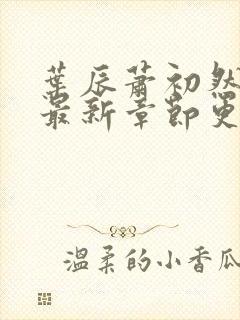 葉辰蕭初然
最新章節更
温柔的小香瓜